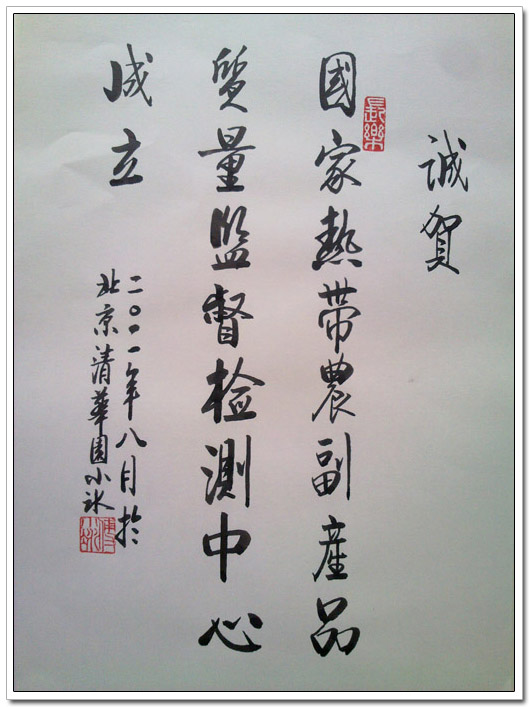 誠賀
長樂
國家熱帶農副産品
質量監督检測中心
成立
二〇一一年八月於
北京清華園小冰